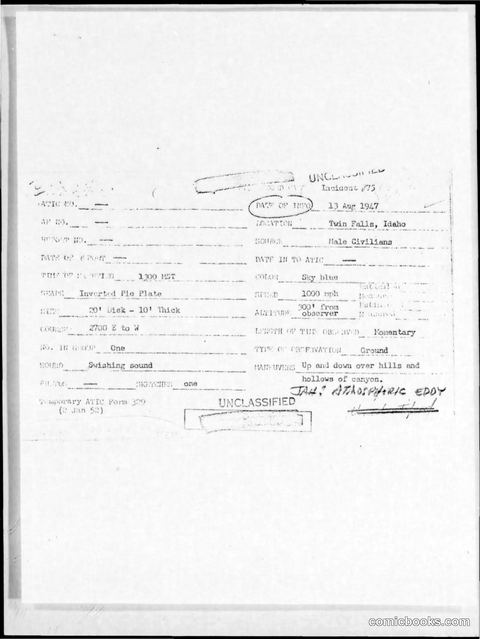 UNCLASSIFIED
Incident #75
ATIC NO. —
DATE OF INFO 13 Aug 1947
AF NO. —
LOCATION Twin Falls, Idaho
REPORT NO. —
SOURCE Male Civilians
DATE OF REPORT —
DATE IN TO ATIC —
TIME OF SIGHTING 1300 MST
COLOR Sky blue
SHAPE Inverted Pie Plate
SPEED 1000 mph
SIZE 20' Disk - 10' Thick
ALTITUDE 300' from observer
COURSE 2700 E to W
LENGTH OF TIME OBSERVED Momentary
NO. IN GROUP One
TYPE OF OBSERVATION Ground
SOUND Swishing sound
MANEUVERS Up and down over hills and
hollows of canyon.
PHOTOS — SKETCHES one
JAH: ATMOSPHERIC EDDY
Temporary ATIC Form 329
(2 Jan 52)
UNCLASSIFIED
comicbooks.com